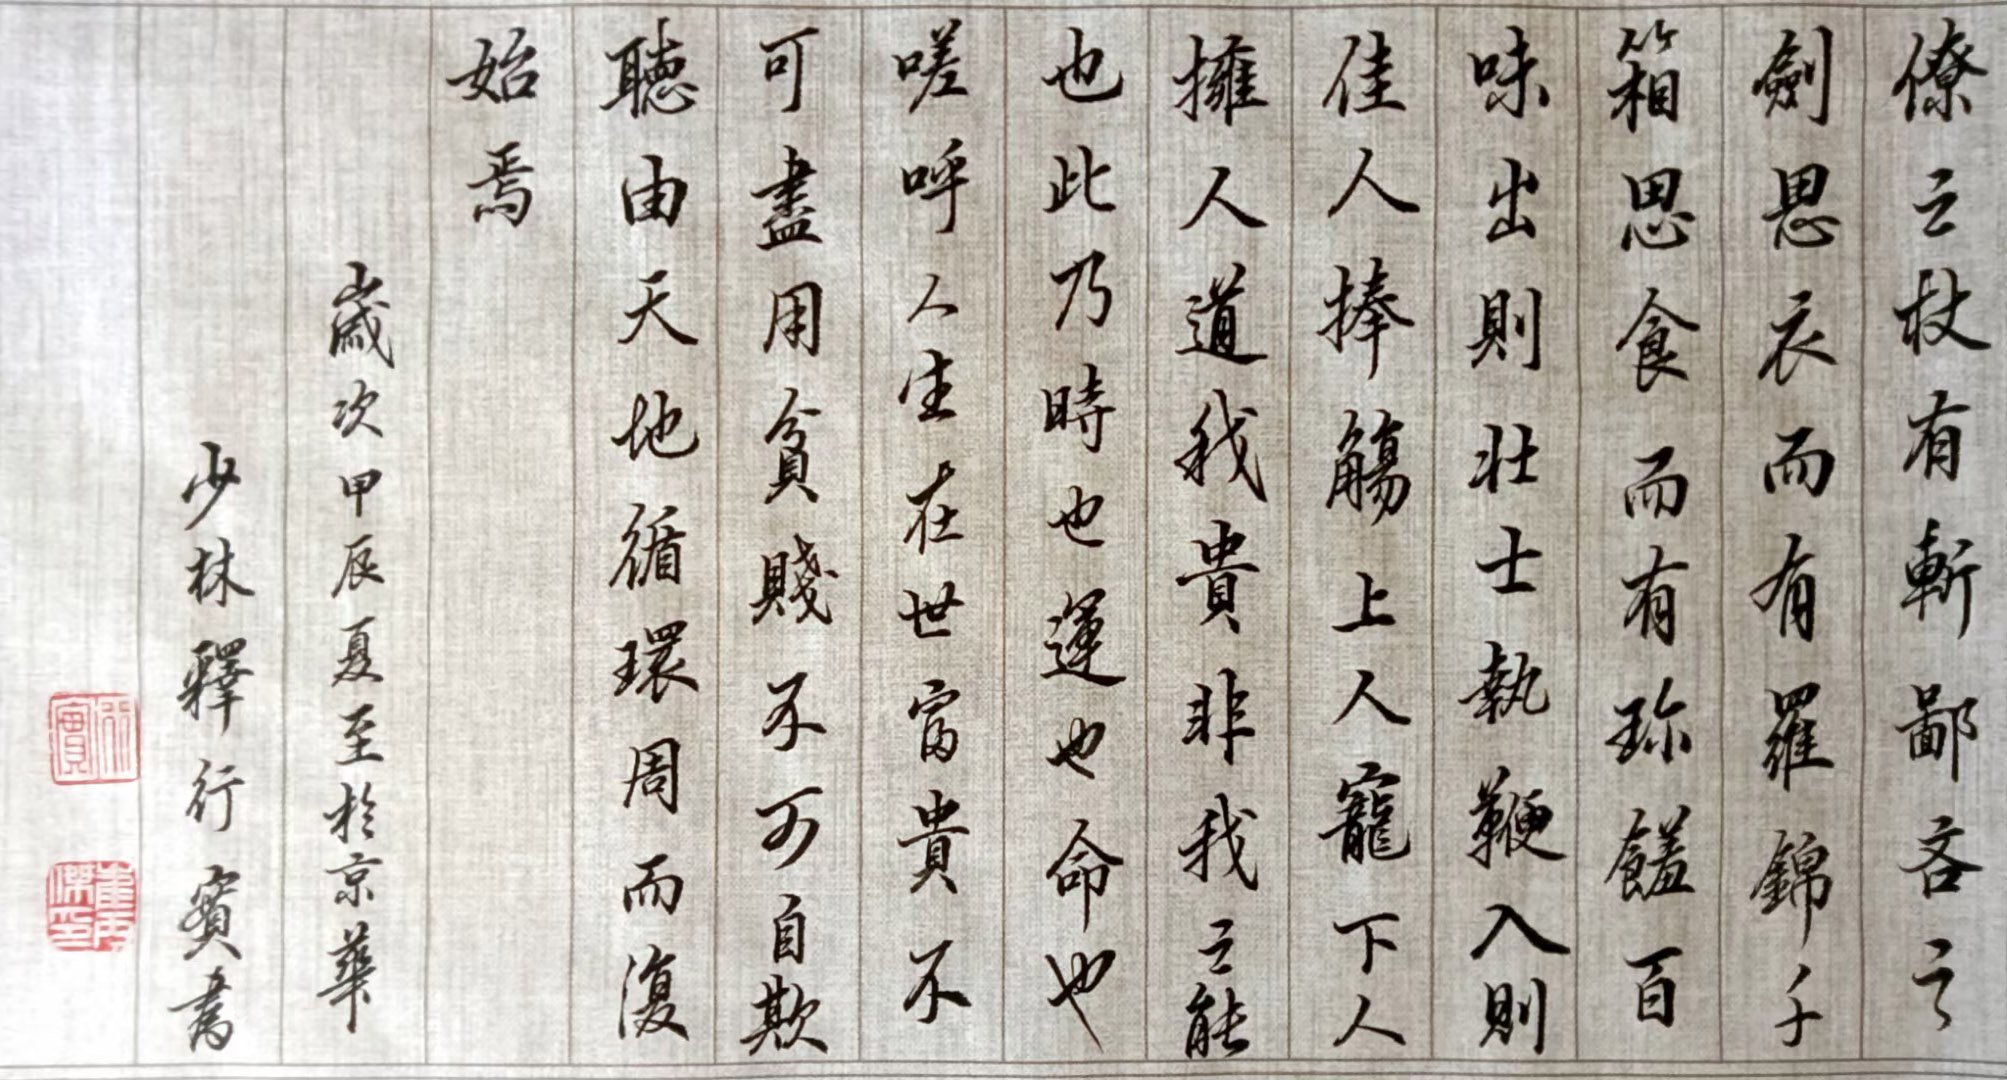 僚之杖有斬鄙吝之
劍思衣而有羅錦千
箱思食而有珍饈百
味出則壯士執鞭入則
佳人捧觴上人寵下人
擁人道我貴非我之能
也此乃時也運也命也
嗟呼人生在世富貴不
可盡用貧賤不可自欺
聽由天地循環周而復
始焉
歲次甲辰夏至於京華
少林釋行實書
行實